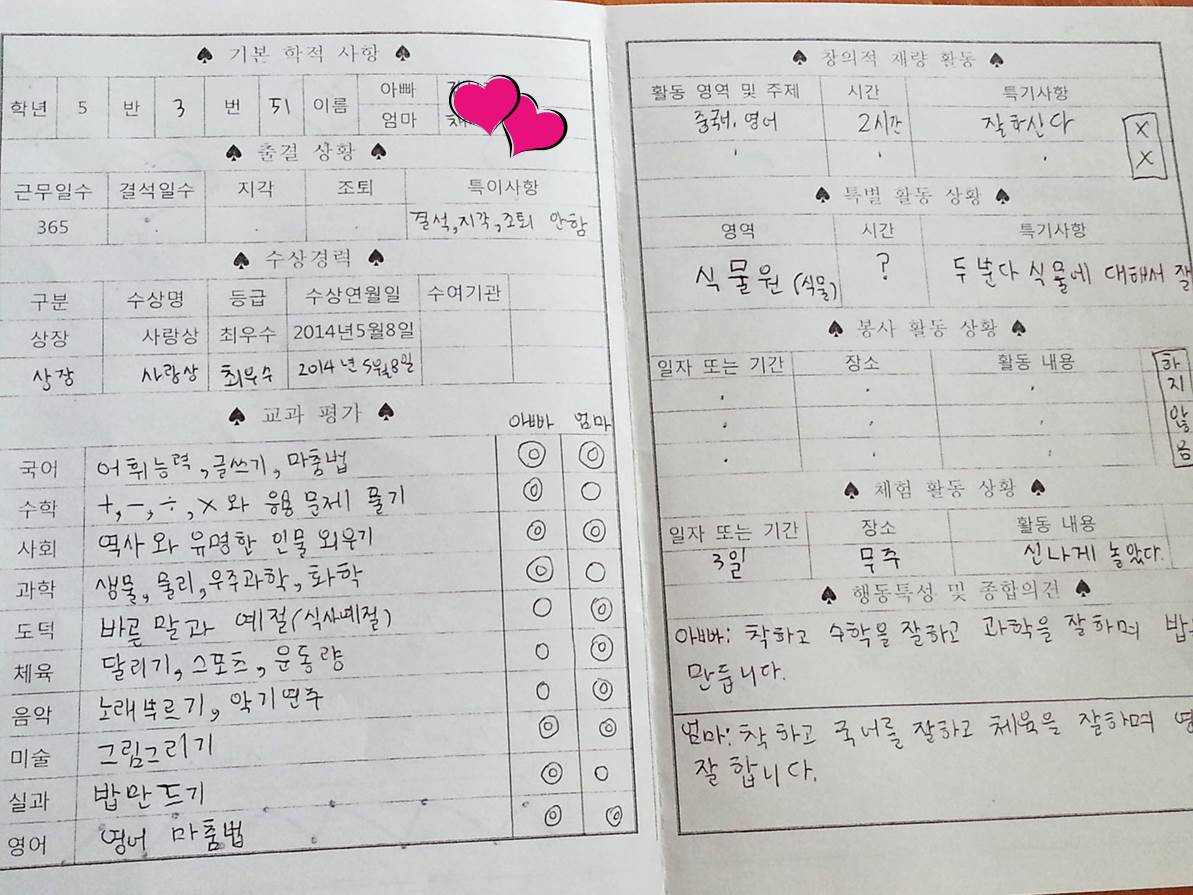 ♠ 기본 학적 사항 ♠
학년 5 반 3 번 51 이름 아빠
엄마
♠ 출결 상황 ♠
근무일수 결석일수 지각 조퇴 특이사항
365 결석,지각,조퇴 안함
♠ 수상경력 ♠
구분 수상명 등급 수상연월일 수여기관
상장 사랑상 최우수 2014년5월8일
상장 사랑상 최우수 2014년 5월8일
♠ 교과 평가 ♠ 아빠 엄마
국어 어휘능력, 글쓰기, 마춤법 ◎ ◎
수학 +, -, ÷, × 와 응용 문제 풀기 ◎ ○
사회 역사와 유명한 인물 외우기 ◎ ◎
과학 생물, 물리, 우주과학, 화학 ◎ ○
도덕 바른 말과 예절(식사예절) ○ ◎
체육 달리기, 스포츠, 운동량 ○ ◎
음악 노래부르기, 악기연주 ○ ◎
미술 그림그리기 ◎ ◎
실과 밥만드기 ◎ ○
영어 영어 마춤법 ◎ ◎
♠ 창의적 재량 활동 ♠
활동 영역 및 주제 시간 특기사항
중국어, 영어 2시간 잘하신다 X
X
♠ 특별 활동 상황 ♠
영역 시간 특기사항
식물원 (식물) ? 두 분다 식물에 대해서 잘
♠ 봉사 활동 상황 ♠
일자 또는 기간 장소 활동 내용 하
지
않
음
♠ 체험 활동 상황 ♠
일자 또는 기간 장소 활동 내용
3일 무주 신나게 놀았다.
♠ 행동특성 및 종합의견 ♠
아빠: 착하고 수학을 잘하고 과학을 잘하며 밥
만듭니다.
엄마: 착하고 국어를 잘하고 체육을 잘하며 영
잘 합니다.